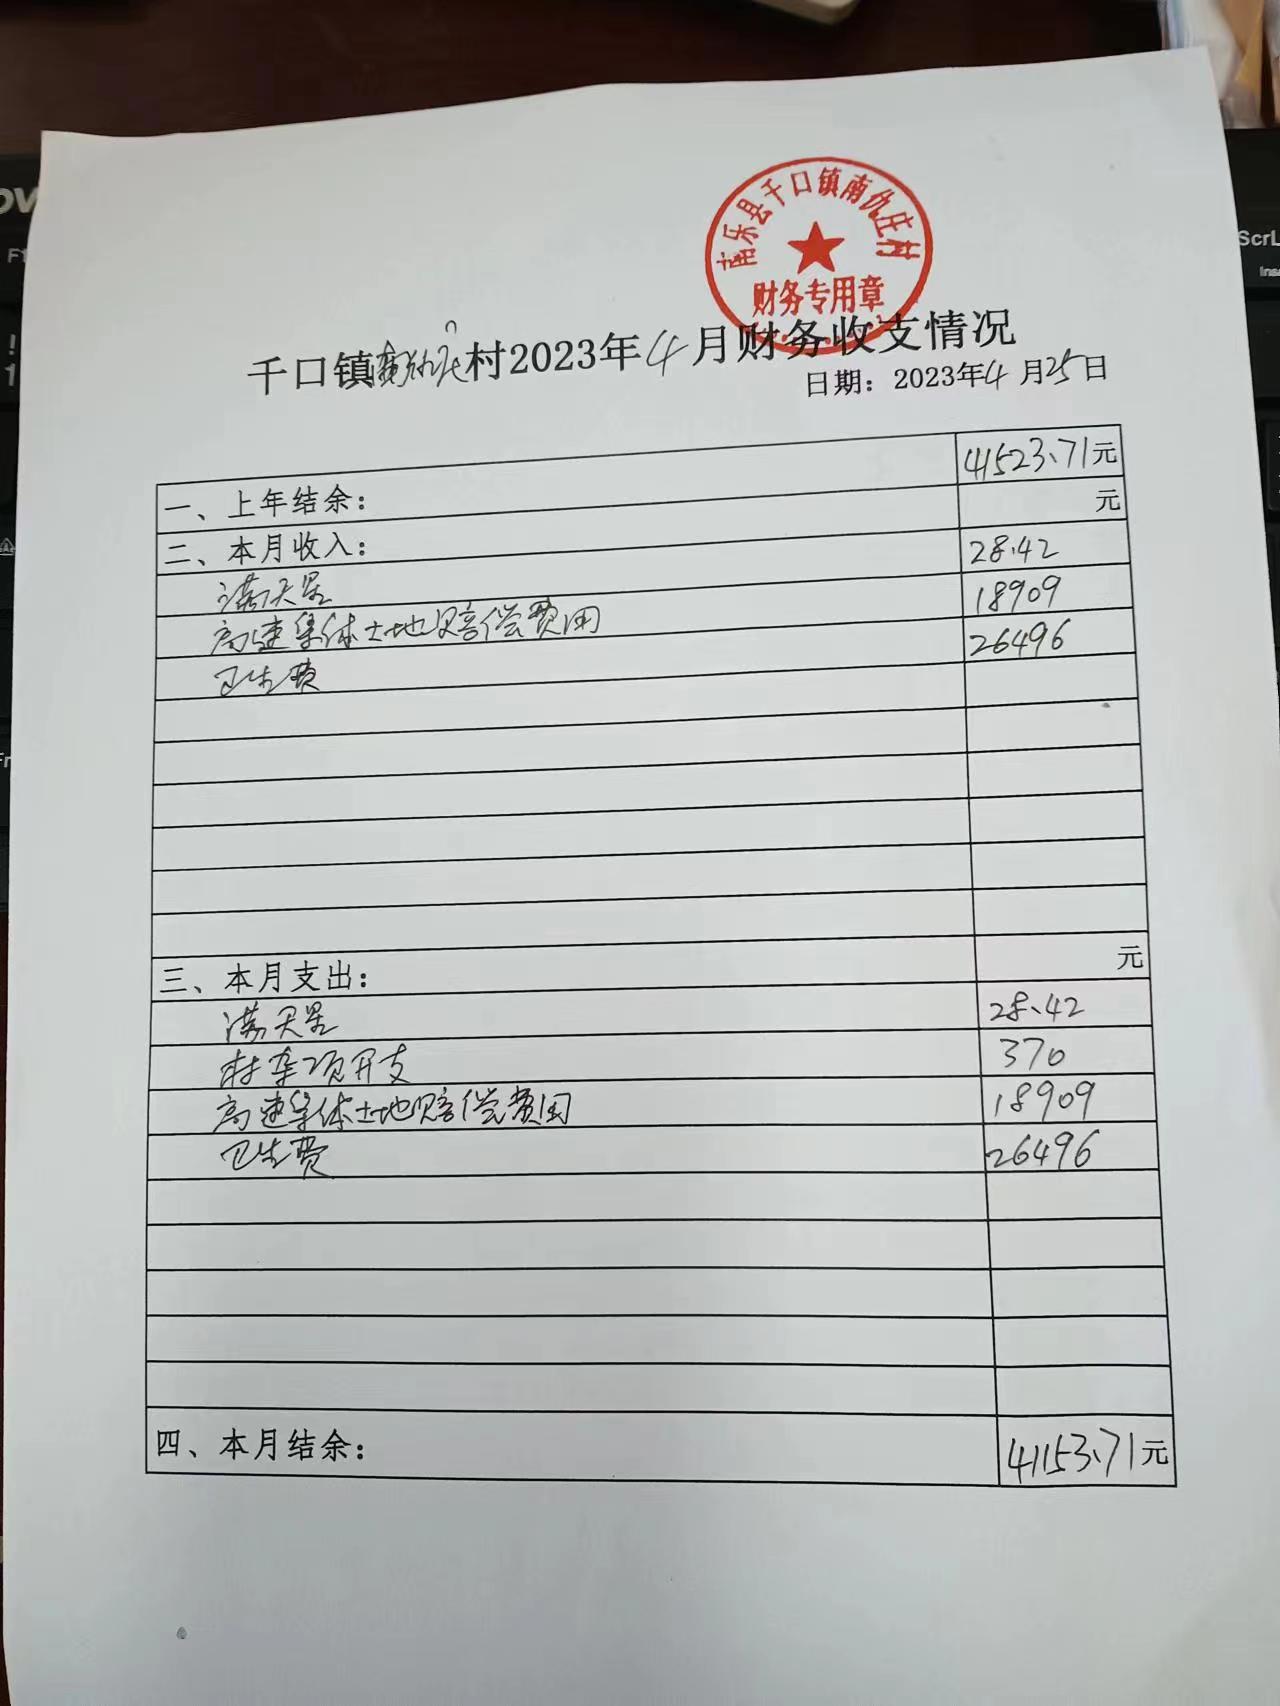 南乐县千口镇南仇庄村
财务专用章
千口镇南仇庄村2023年4月财务收支情况
日期：2023年4月25日
一、上年结余： 41523.71元
二、本月收入： 元
满天星 28.42
高速集体土地赔偿费用 18909
卫生费 26496
三、本月支出： 元
满天星 28.42
村杂项开支 370
高速集体土地赔偿费用 18909
卫生费 26496
四、本月结余： 41153.71元
ScrL